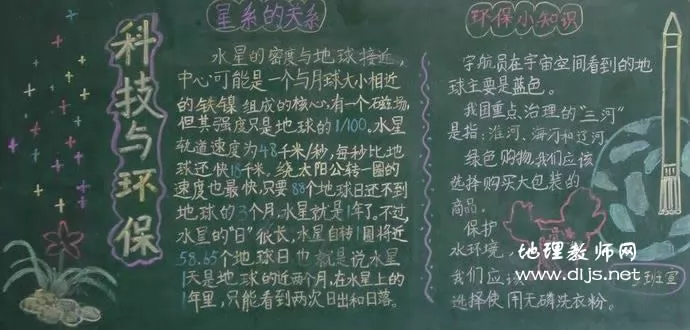 科技与环保
星系的关系
水星的密度与地球接近，
中心可能是一个与月球大小相近
的铁镍组成的核心。有一个磁场，
但其强度只是地球的1/100。水星
轨道速度为48千米/秒，每秒比地
球还快18千米。绕太阳公转一圈的
速度也最快，只要88个地球日还不到
地球的3个月，水星就是1年了。不过，
水星的"日"很长，水星自转1圆将近
58.65个地球日也就是说水星
1天是地球的近两个月，在水星上的
1年里，只能看到两次日出和日落。
环保小知识
宇航员在宇宙空间看到的地
球主要是蓝色。
我国重点治理的"三河"
是指：淮河、海河和辽河
绿色购物，我们应该
选择购买大包装的
商品。
保护
水环境，
我们应该
选择使用无磷洗衣粉。
班宣
地理教师网
www.dljs.net